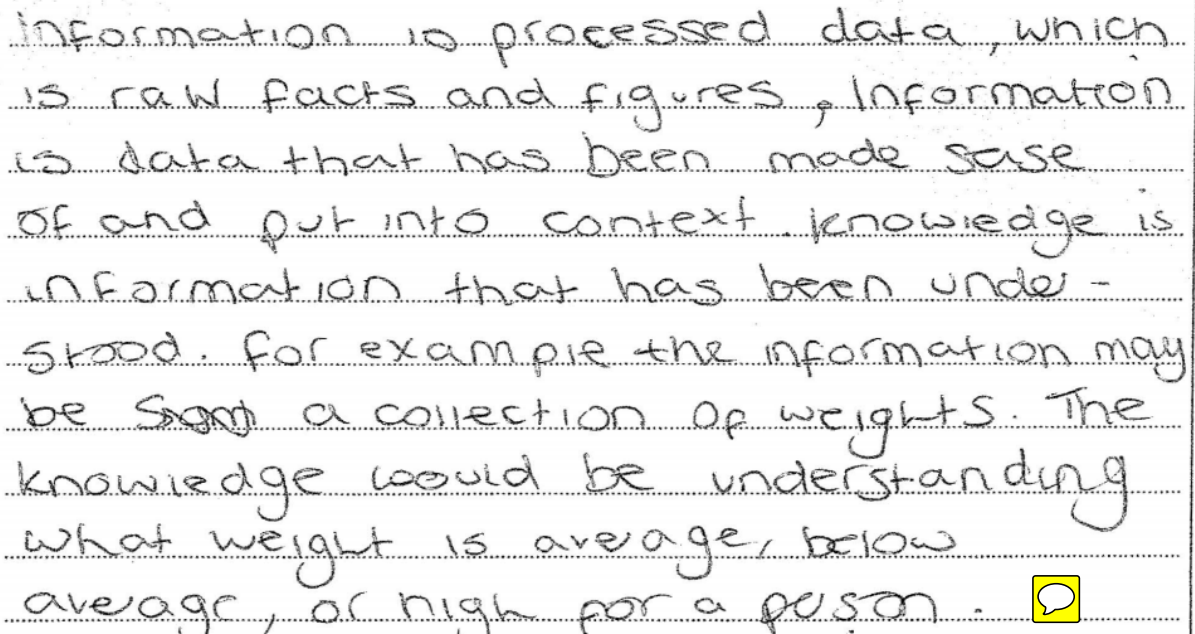 information is processed data, which
is raw facts and figures, Information
is data that has been made sase
of and put into context. knowledge is
information that has been unde-
stood. for example the information may
be a collection of weights. The
knowledge would be understanding
what weight is average, below
average, or high for a person.